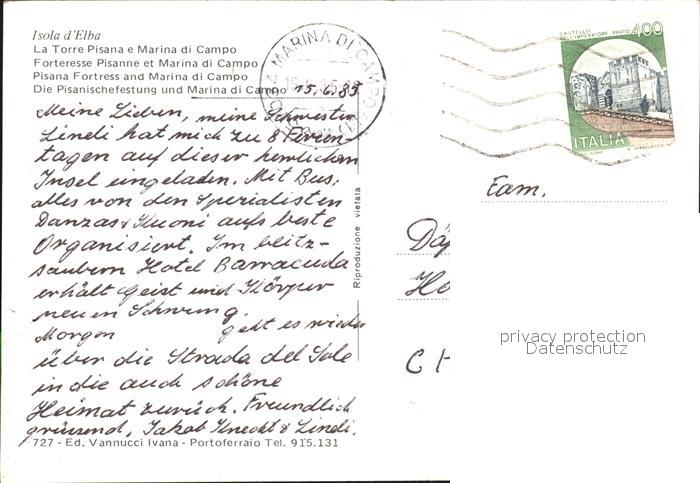 Isola d'Elba
La Torre Pisana e Marina di Campo
Forteresse Pisanne et Marina di Campo
Pisana Fortress and Marina di Campo
Die Pisanischefestung und Marina di Campo
15.6.85
Meine Lieben, meine Schwester
Lineli hat mich zu 8 Ferien-
tagen auf dieser herrlichen
Insel eingeladen. Mit Bus;
alles von den Spezialisten
Danzas & Kuoni aufs beste
Organisiert. Im blitz-
saubern Hotel Barracuda
erhält Geist und Körper
neuen Schwung.
Morgen geht es wieder
über die Strada del Sole
in die auch schöne
Heimat zurück. Freundlich
grüssend, Jakob Knecht & Lineli.
727 - Ed. Vannucci Ivana - Portoferraio Tel. 915.131
Riproduzione vietata
MARINA DI CAMPO
CASTELLO
DELL'IMPERATORE PRATO 400
ITALIA
ROMA
Fam.
Däp
Ho
CH
privacy protection
Datenschutz